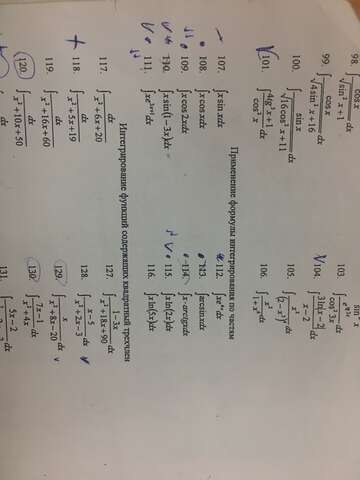 98. ∫ cosx / √(sin²x + 1) dx
99. ∫ cosx / √(4sin²x + 16) dx
100. ∫ sinx / √(16cos²x + 11) dx
101. ∫ (4tg³x + 1) / cos²x dx
103.
104. ∫ 3ln(x − 2) / (x − 2) dx
105.
106.
Применение формулы интегрирования по частям
107. ∫ x sin x dx
108. ∫ x cos x dx
109. ∫ x cos 2x dx
110. ∫ x sin(1 − 3x) dx
111.
112. ∫ xeˣ dx
113. ∫ arcsin x dx
114. ∫ x · arctgx dx
115. ∫ x ln(2x) dx
116. ∫ x ln(5x) dx
Интегрирование функций содержащих квадратный трехчлен
117. ∫ dx / (x² + 6x + 20)
118. ∫ dx / (x² + 5x + 19)
119. ∫ dx / (x² + 16x + 60)
120. ∫ dx / (x² + 10x + 50)
127. ∫ (1 − 3x) / (x² + 18x + 90) dx
128. ∫ (x − 5) / (x² + 2x − 3) dx
129. ∫ x / (x² + 8x − 20) dx
130. ∫ (7x − 1) / (x² + 4x) dx
131. 5x − 2